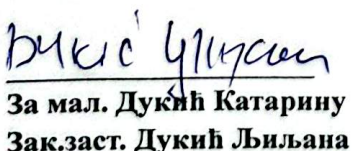 Дукић Љиљана
За мал. Дукић Катарину
Зак.заст. Дукић Љиљана